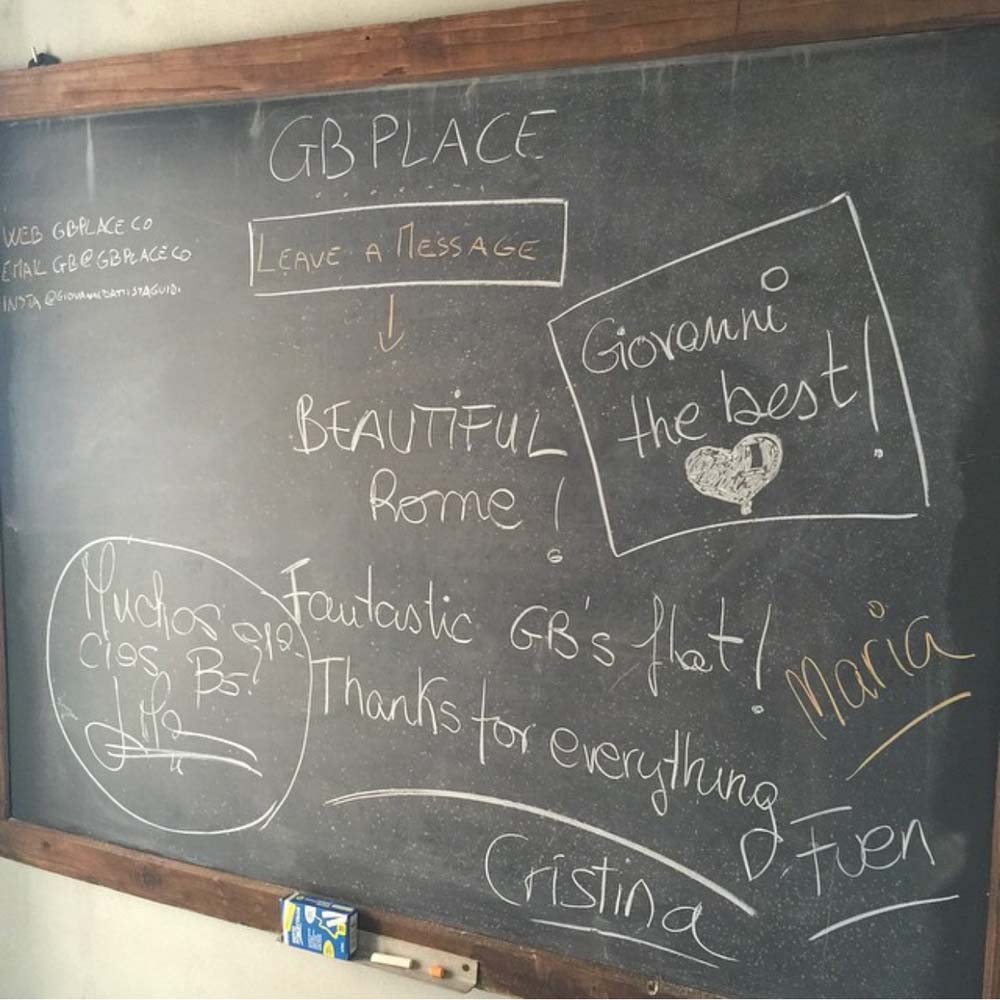 GB PLACE
WEB GBPLACE CO
EMAIL GB@GBPLACE CO
INSTA @GIOVANNIBATTISTAGUIDI
LEAVE A MESSAGE
Giovanni
the best!
BEAUTIFUL
Rome!
Muchos gra-
cias Bs!
Fantastic GB's flat!
Thanks for everything
Maria
D. Fuen
Cristina